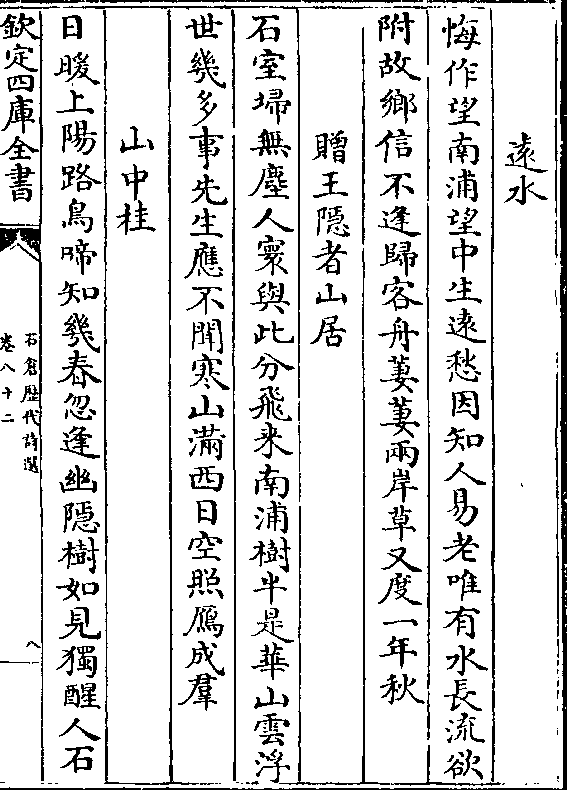 遠水
悔作望南浦望中生遠愁因知人易老唯有水長流欲
附故鄉信不逢歸客舟萋萋兩岸草又度一年秋
贈王隱者山居
石室埽無塵人寰與此分飛来南浦樹半是華山雲浮
世幾多事先生應不聞寒山滿西日空照鴈成羣
山中桂
日暖上陽路鳥啼知幾春忽逢幽隱樹如見獨醒人石
欽定四庫全書
石倉歷代詩選
卷八十二
八